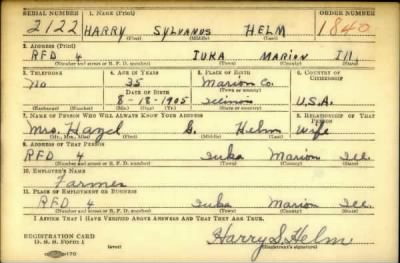 SERIAL NUMBER 1. NAME (Print) ORDER NUMBER
2122 HARRY SYLVANUS HELM 1840
(First) (Middle) (Last)
2. ADDRESS (Print)
RFD 4 IUKA MARION Ill.
(Number and street or R. F. D. number) (Town) (County) (State)
3. TELEPHONE 4. AGE IN YEARS 5. PLACE OF BIRTH 6. COUNTRY OF CITIZENSHIP
no 35 Marion Co.
DATE OF BIRTH (Town or county)
8-18-1905 Illinois U.S.A.
(Exchange) (Number) (Mo.) (Day) (Yr.) (State or country)
7. NAME OF PERSON WHO WILL ALWAYS KNOW YOUR ADDRESS 8. RELATIONSHIP OF THAT PERSON
Mrs. Hazel G. Helm Wife
(Mr., Mrs., Miss) (First) (Middle) (Last)
9. ADDRESS OF THAT PERSON
RFD 4 Iuka Marion Ill.
(Number and street or R. F. D. number) (Town) (County) (State)
10. EMPLOYER'S NAME
Farmer
11. PLACE OF EMPLOYMENT OR BUSINESS
RFD 4 Iuka Marion Ill.
(Number and street or R. F. D. number) (Town) (County) (State)
I AFFIRM THAT I HAVE VERIFIED ABOVE ANSWERS AND THAT THEY ARE TRUE.
REGISTRATION CARD
D. S. S. Form 1 (over) Harry S. Helm
(Registrant's signature)